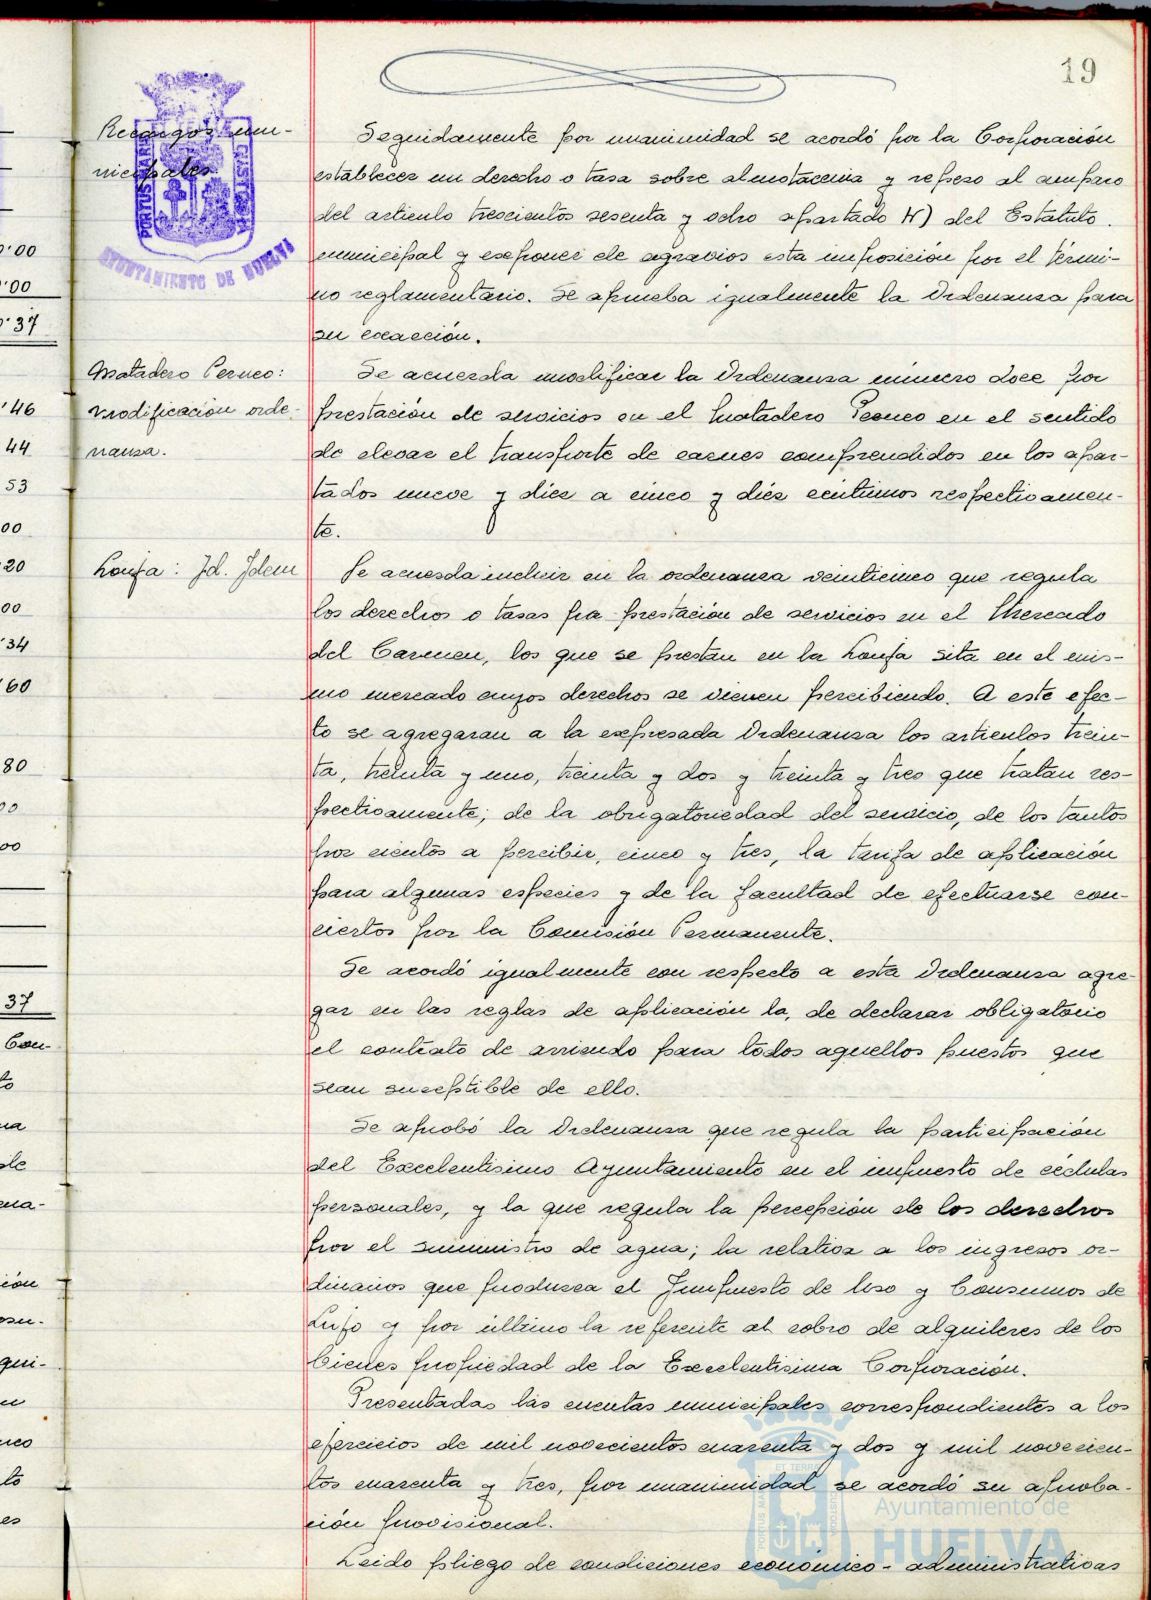 19
Recargos mu-
nicipales.
PORTUS MARIS ET TERRAE CUSTODIA
AYUNTAMIENTO DE HUELVA
Seguidamente por unanimidad se acordó por la Corporación
establecer un derecho o tasa sobre almotacenia y repeso al amparo
del articulo trescientos sesenta y ocho apartado H) del Estatuto
municipal y exponer de agravios esta imposición por el térmi-
no reglamentario. Se aprueba igualmente la Ordenanza para
su exacción.
Matadero Perneo:
modificación orde-
nanza.
Se acuerda modificar la Ordenanza número doce por
prestación de servicios en el Matadero Perneo en el sentido
de elevar el transporte de carnes comprendidos en los apar-
tados nueve y diez a cinco y diez céntimos respectivamen-
te.
Lonja: Id. Idem
Se acuerda incluir en la ordenanza veinticinco que regula
los derechos o tasas pra prestación de servicios en el Mercado
del Carmen, los que se prestan en la Lonja sita en el mis-
mo mercado cuyos derechos se vienen percibiendo. A este efec-
to se agregaran a la expresada Ordenanza los articulos trein-
ta, treinta y uno, treinta y dos y treinta y tres que tratan res-
pectivamente; de la obrigatoriedad del servicio, de los tantos
por cientos a percibir, cinco y tres, la tarifa de aplicación
para algunas especies y de la facultad de efectuarse con-
ciertos por la Comisión Permanente.
Se acordó igualmente con respecto a esta Ordenanza agre-
gar en las reglas de aplicación la, de declarar obligatorio
el contrato de arriendo para todos aquellos puestos que
sean suceptible de ello.
Se aprobó la Ordenanza que regula la participación
del Excelentisimo Ayuntamiento en el impuesto de cédulas
personales, y la que regula la percepción de los derechos
por el suministro de agua; la relativa a los ingresos or-
dinarios que produzca el Impuesto de Uso y Consumos de
Lujo y por último la referente al cobro de alquileres de los
bienes propiedad de la Excelentisima Corporación.
Presentadas las cuentas municipales correspondientes a los
ejercicios de mil novecientos cuarenta y dos y mil novecien-
tos cuarenta y tres, por unanimidad se acordó su aproba-
ción provisional.
Leido pliego de condiciones económico-administrativas
Ayuntamiento de
HUELVA